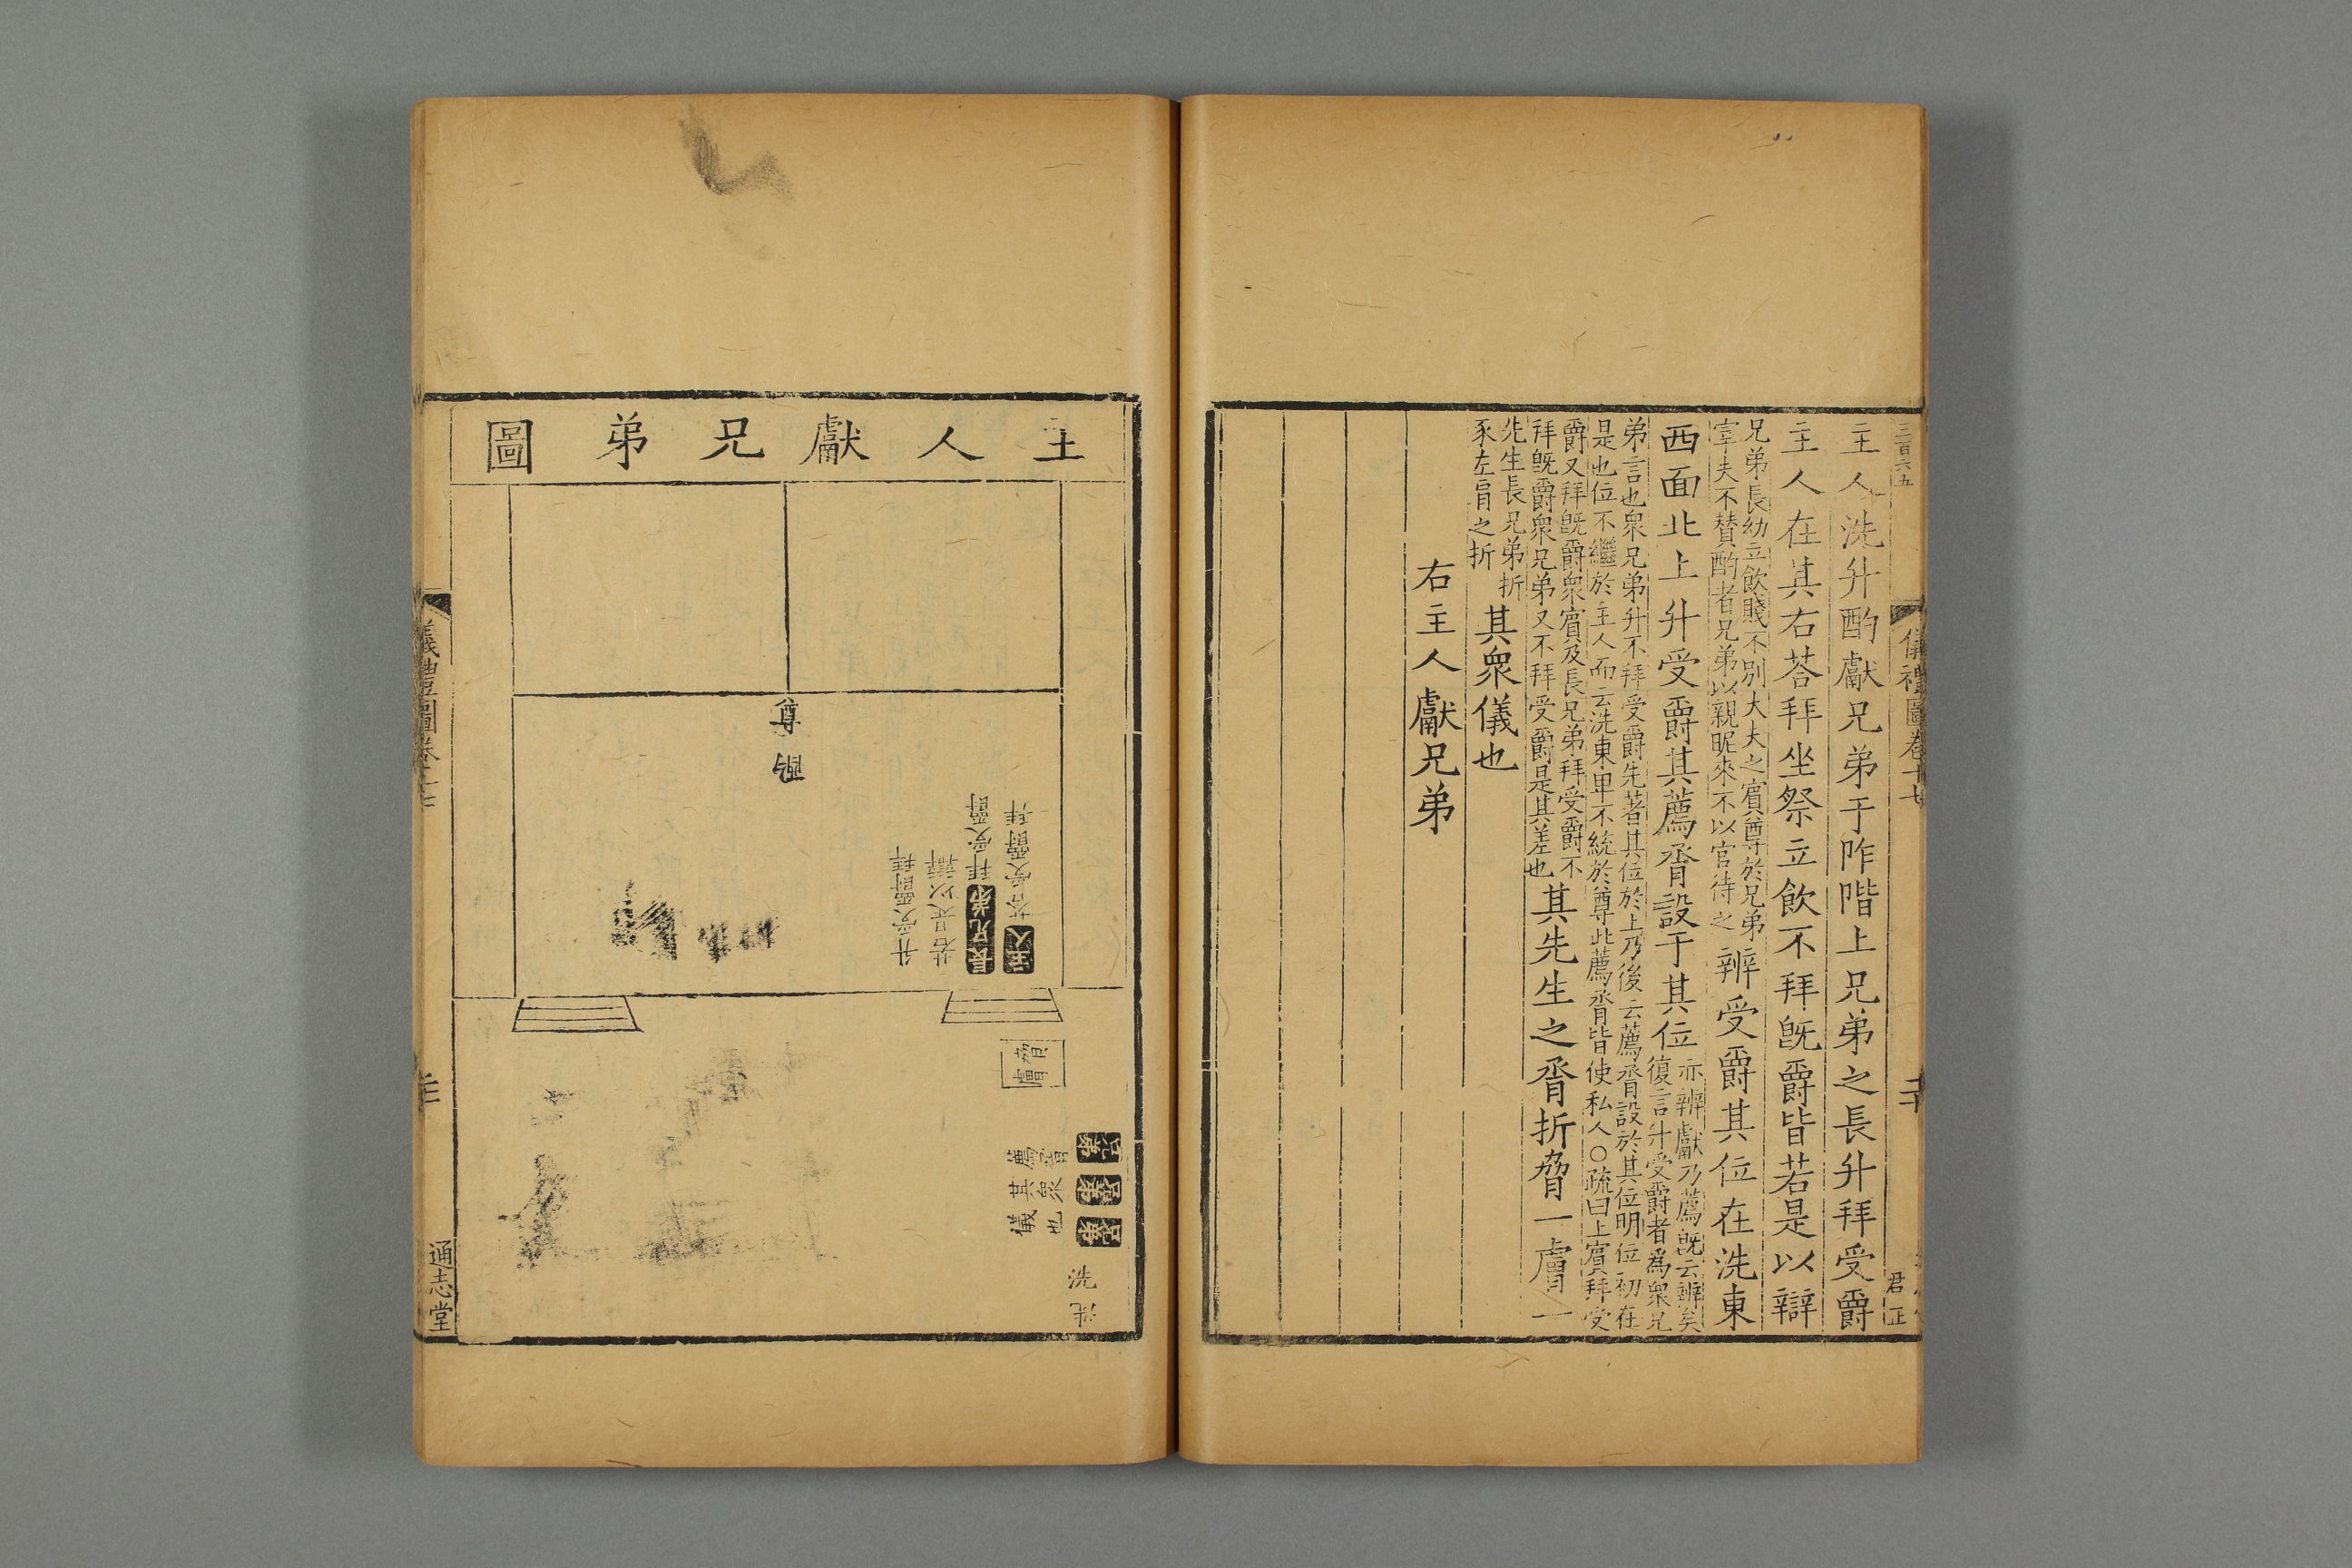 三百六五
儀禮圖卷十七
二十
君正
主人洗升酌獻兄弟于阼階上兄弟之長升拜受爵
主人在其右荅拜坐祭立飲不拜旣爵皆若是以辯
兄弟長幼立飲賤不別大夫之賓尊於兄弟
宰夫不贊酌者兄弟以親昵來不以官待之
辨受爵其位在洗東
西面北上升受爵其薦脀設于其位
亦辨獻乃薦旣云辨矣
復言升受爵者爲衆兄
弟言也衆兄弟升不拜受爵先著其位於上乃後云薦脀設於其位明位初在
是也位不繼於主人而云洗東卑不統於尊此薦脀皆使私人○疏曰上賓拜受
爵又拜旣爵衆賓及長兄弟拜受爵不
拜旣爵衆兄弟又不拜受爵是其差也
其先生之脀折脅一膚一
先生長兄弟折
豕左肩之折
其衆儀也
右主人獻兄弟
主人獻兄弟圖
尊
酌
主人荅受爵拜
長兄弟拜受爵
若是以辯
升受爵拜
脀膚
兄弟
兄弟
兄弟
薦脀
其衆
儀也
洗
洗
儀禮圖卷十七
通志堂